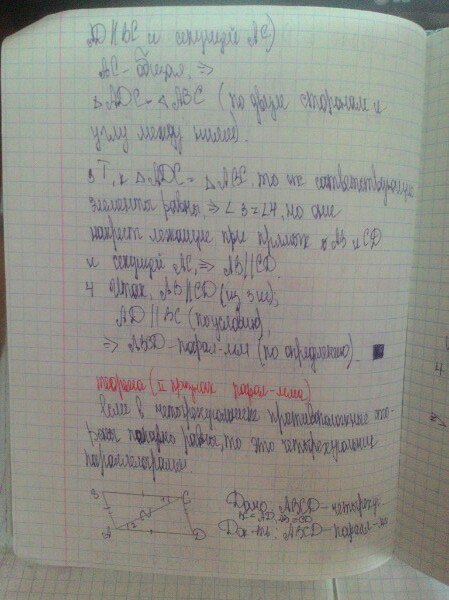 AD||BC и секущей AC)
AC - общая, ⇒
△ADC = △ABC (по двум сторонам и
углу между ними).
3 Т. к △ADC = △ABC, то их соответствующие
элементы равны, ⇒ ∠3=∠4, но они
накрест лежащие при прямых AB и CD
и секущей AC, ⇒ AB||CD.
4 Итак, AB||CD (из 3 п),
AD || BC (по условию),
⇒ ABCD - парал-мм (по определению).
теорема (II признак парал-мма)
Если в четырехугольнике противоположные сто-
роны попарно равны, то это четырехугольник
параллелограмм
B C
A D
1 2
Дано: ABCD - четыреху-
BC = AD, AB = CD
Док-ть: ABCD - парал-мм